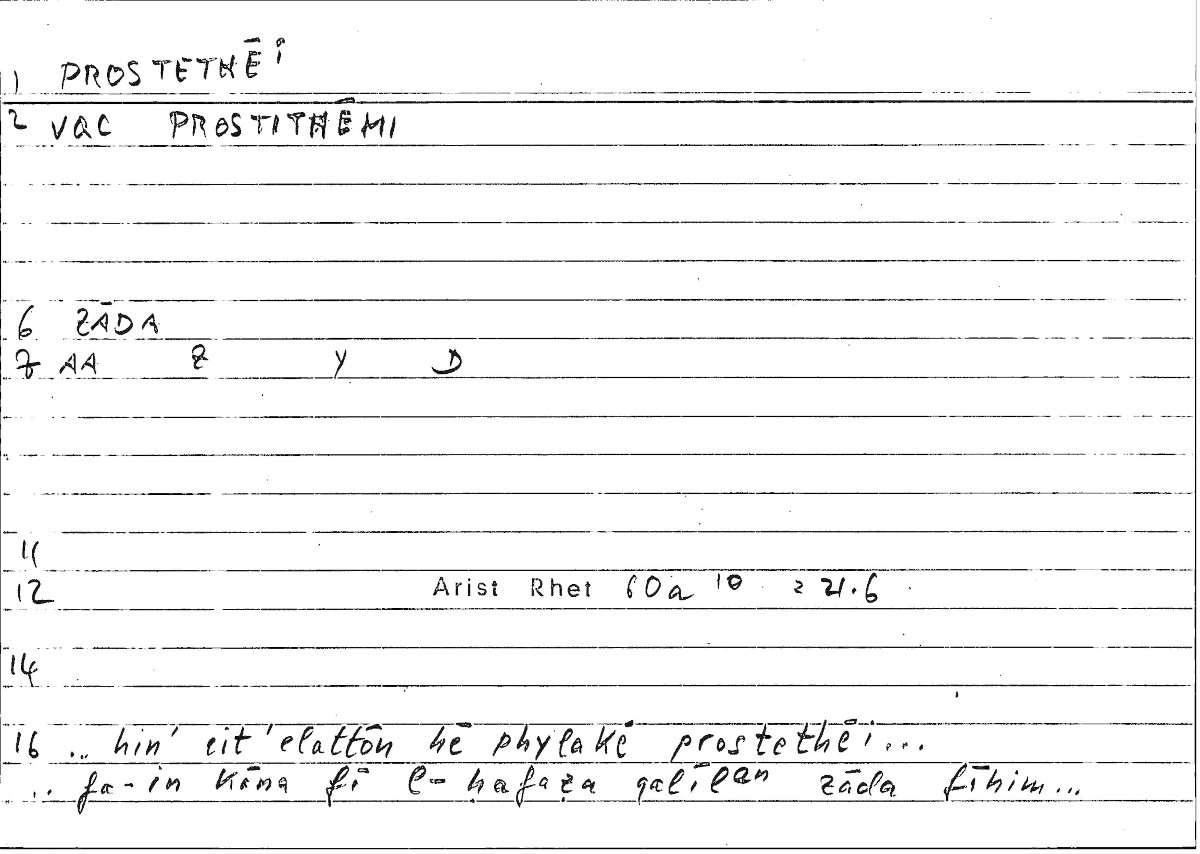 1 PROSTETHĒI
2 VQC PROSTITHĒMI
6 ZĀDA
7 AA Z Y D
11
12 Arist Rhet 60a 10 = 21.6
14
16 ... hin' eit' elattōn hē phylakē prostethēi...
... fa-in kāna fī l-ḥafaẓa qalīlan zāda fīhim...